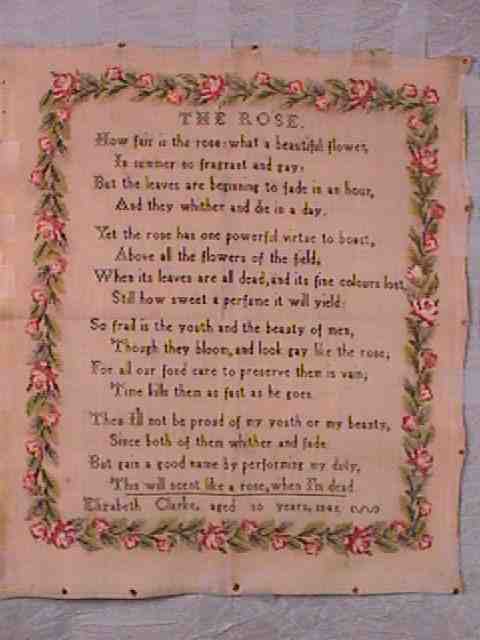 THE ROSE.
How fair is the rose: what a beautiful flower,
In summer so fragrant and gay:
But the leaves are beginning to fade in an hour,
And they whither and die in a day.
Yet the rose has one powerful virtue to boast,
Above all the flowers of the field,
When its leaves are all dead, and its fine colours lost,
Still how sweet a perfume it will yield:
So frail is the youth and the beauty of men,
Though they bloom, and look gay like the rose;
For all our fond care to preserve them is vain;
Time kills them as fast as he goes.
Then I'll not be proud of my youth or my beauty,
Since both of them whither and fade:
But gain a good name by performing my duty,
This will scent like a rose, when I'm dead
Elizabeth Clarke, aged years,